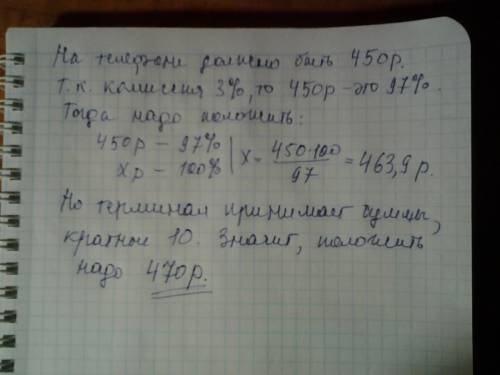 На телефоне должно быть 450р.
Т.к. комиссия 3%, то 450р - это 97%.
Тогда надо положить:
450р – 97%
хр – 100%
х = 450·100 / 97 = 463,9 р.
Но терминал принимает суммы,
кратное 10. Значит, положить
надо 470р.